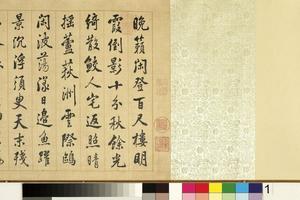 晚蘋閒登百尺樓明
霞倒影十分秋餘光
綺散鮫人宅返照晴
搖蘆荻洲雲際鷗
閒波蕩漾日邊魚躍
景沉浮須臾天末殘
1